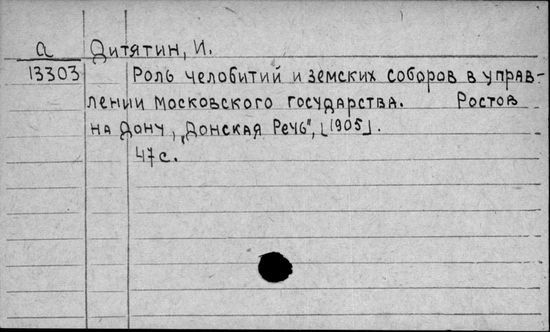 а Дитятин, И.
13303 Роль челобитий и земских соборов в управ-
лении Московского государства. Ростов
на Дону, „Донская Речь", [1905].
47 с.